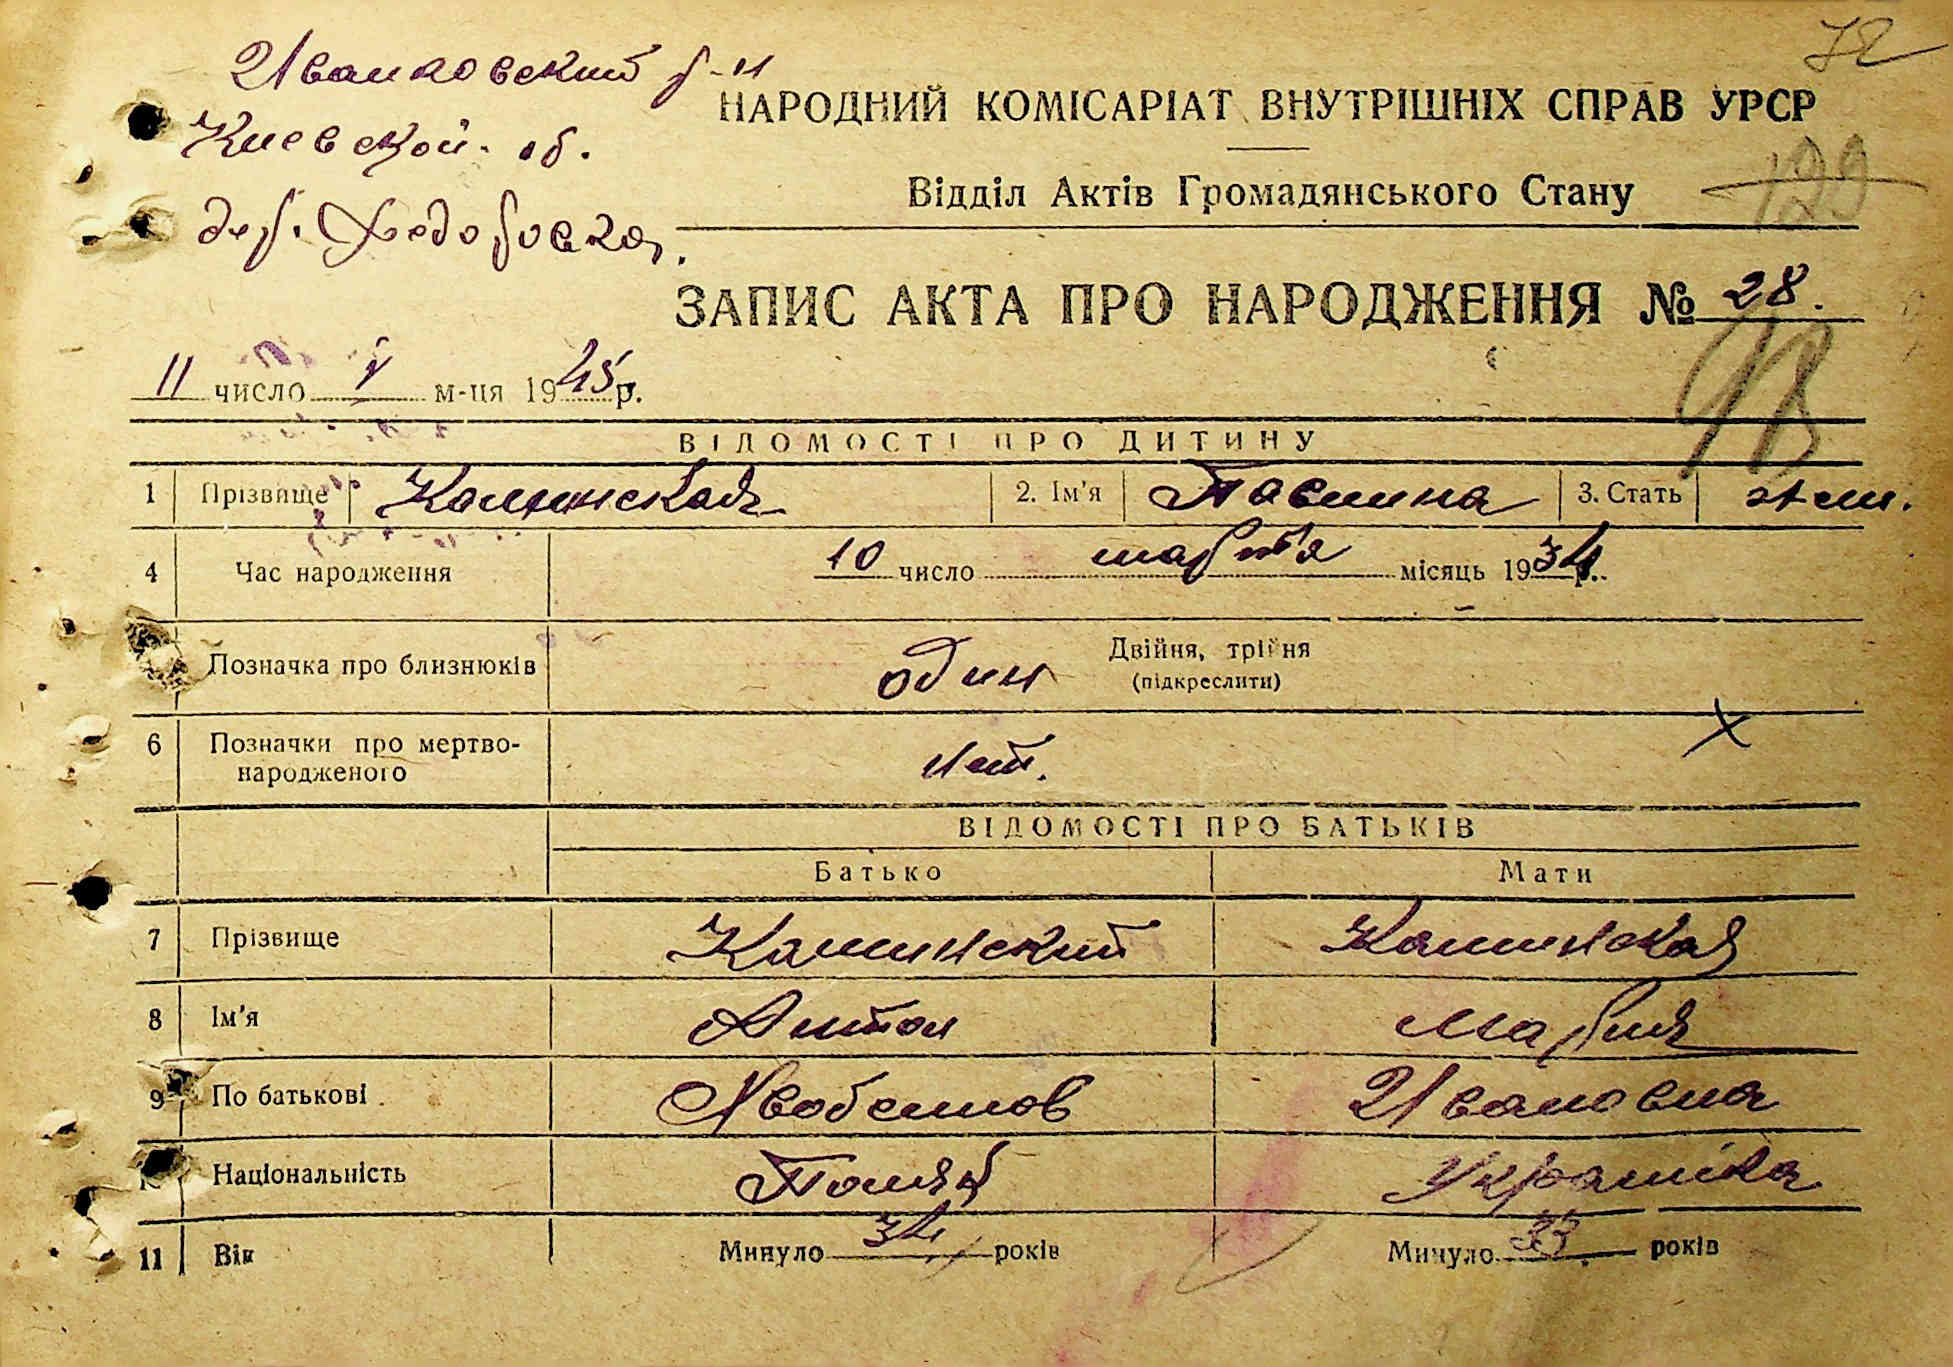 Иванковский р-н
Киевской об.
дер. Федоровка,
72
НАРОДНИЙ КОМІСАРІАТ ВНУТРІШНІХ СПРАВ УРСР
Відділ Актів Громадянського Стану
129
ЗАПИС АКТА ПРО НАРОДЖЕННЯ № 28.
11 число V м-ця 1945 р.
ВІДОМОСТІ ПРО ДИТИНУ
1 Прізвище Каминская 2. Ім'я Павлина 3. Стать жен.
4 Час народження 10 число марта місяць 1934 р.
Позначка про близнюків один Двійня, трійня
(підкреслити)
6 Позначки про мертво-
народженого нет.
ВІДОМОСТІ ПРО БАТЬКІВ
Батько Мати
7 Прізвище Каминский Каминская
8 Ім'я Антон Мария
9 По батькові Ивановна
Національність Поляк Українка
11 Вік Минуло 34 років Минуло 33 років